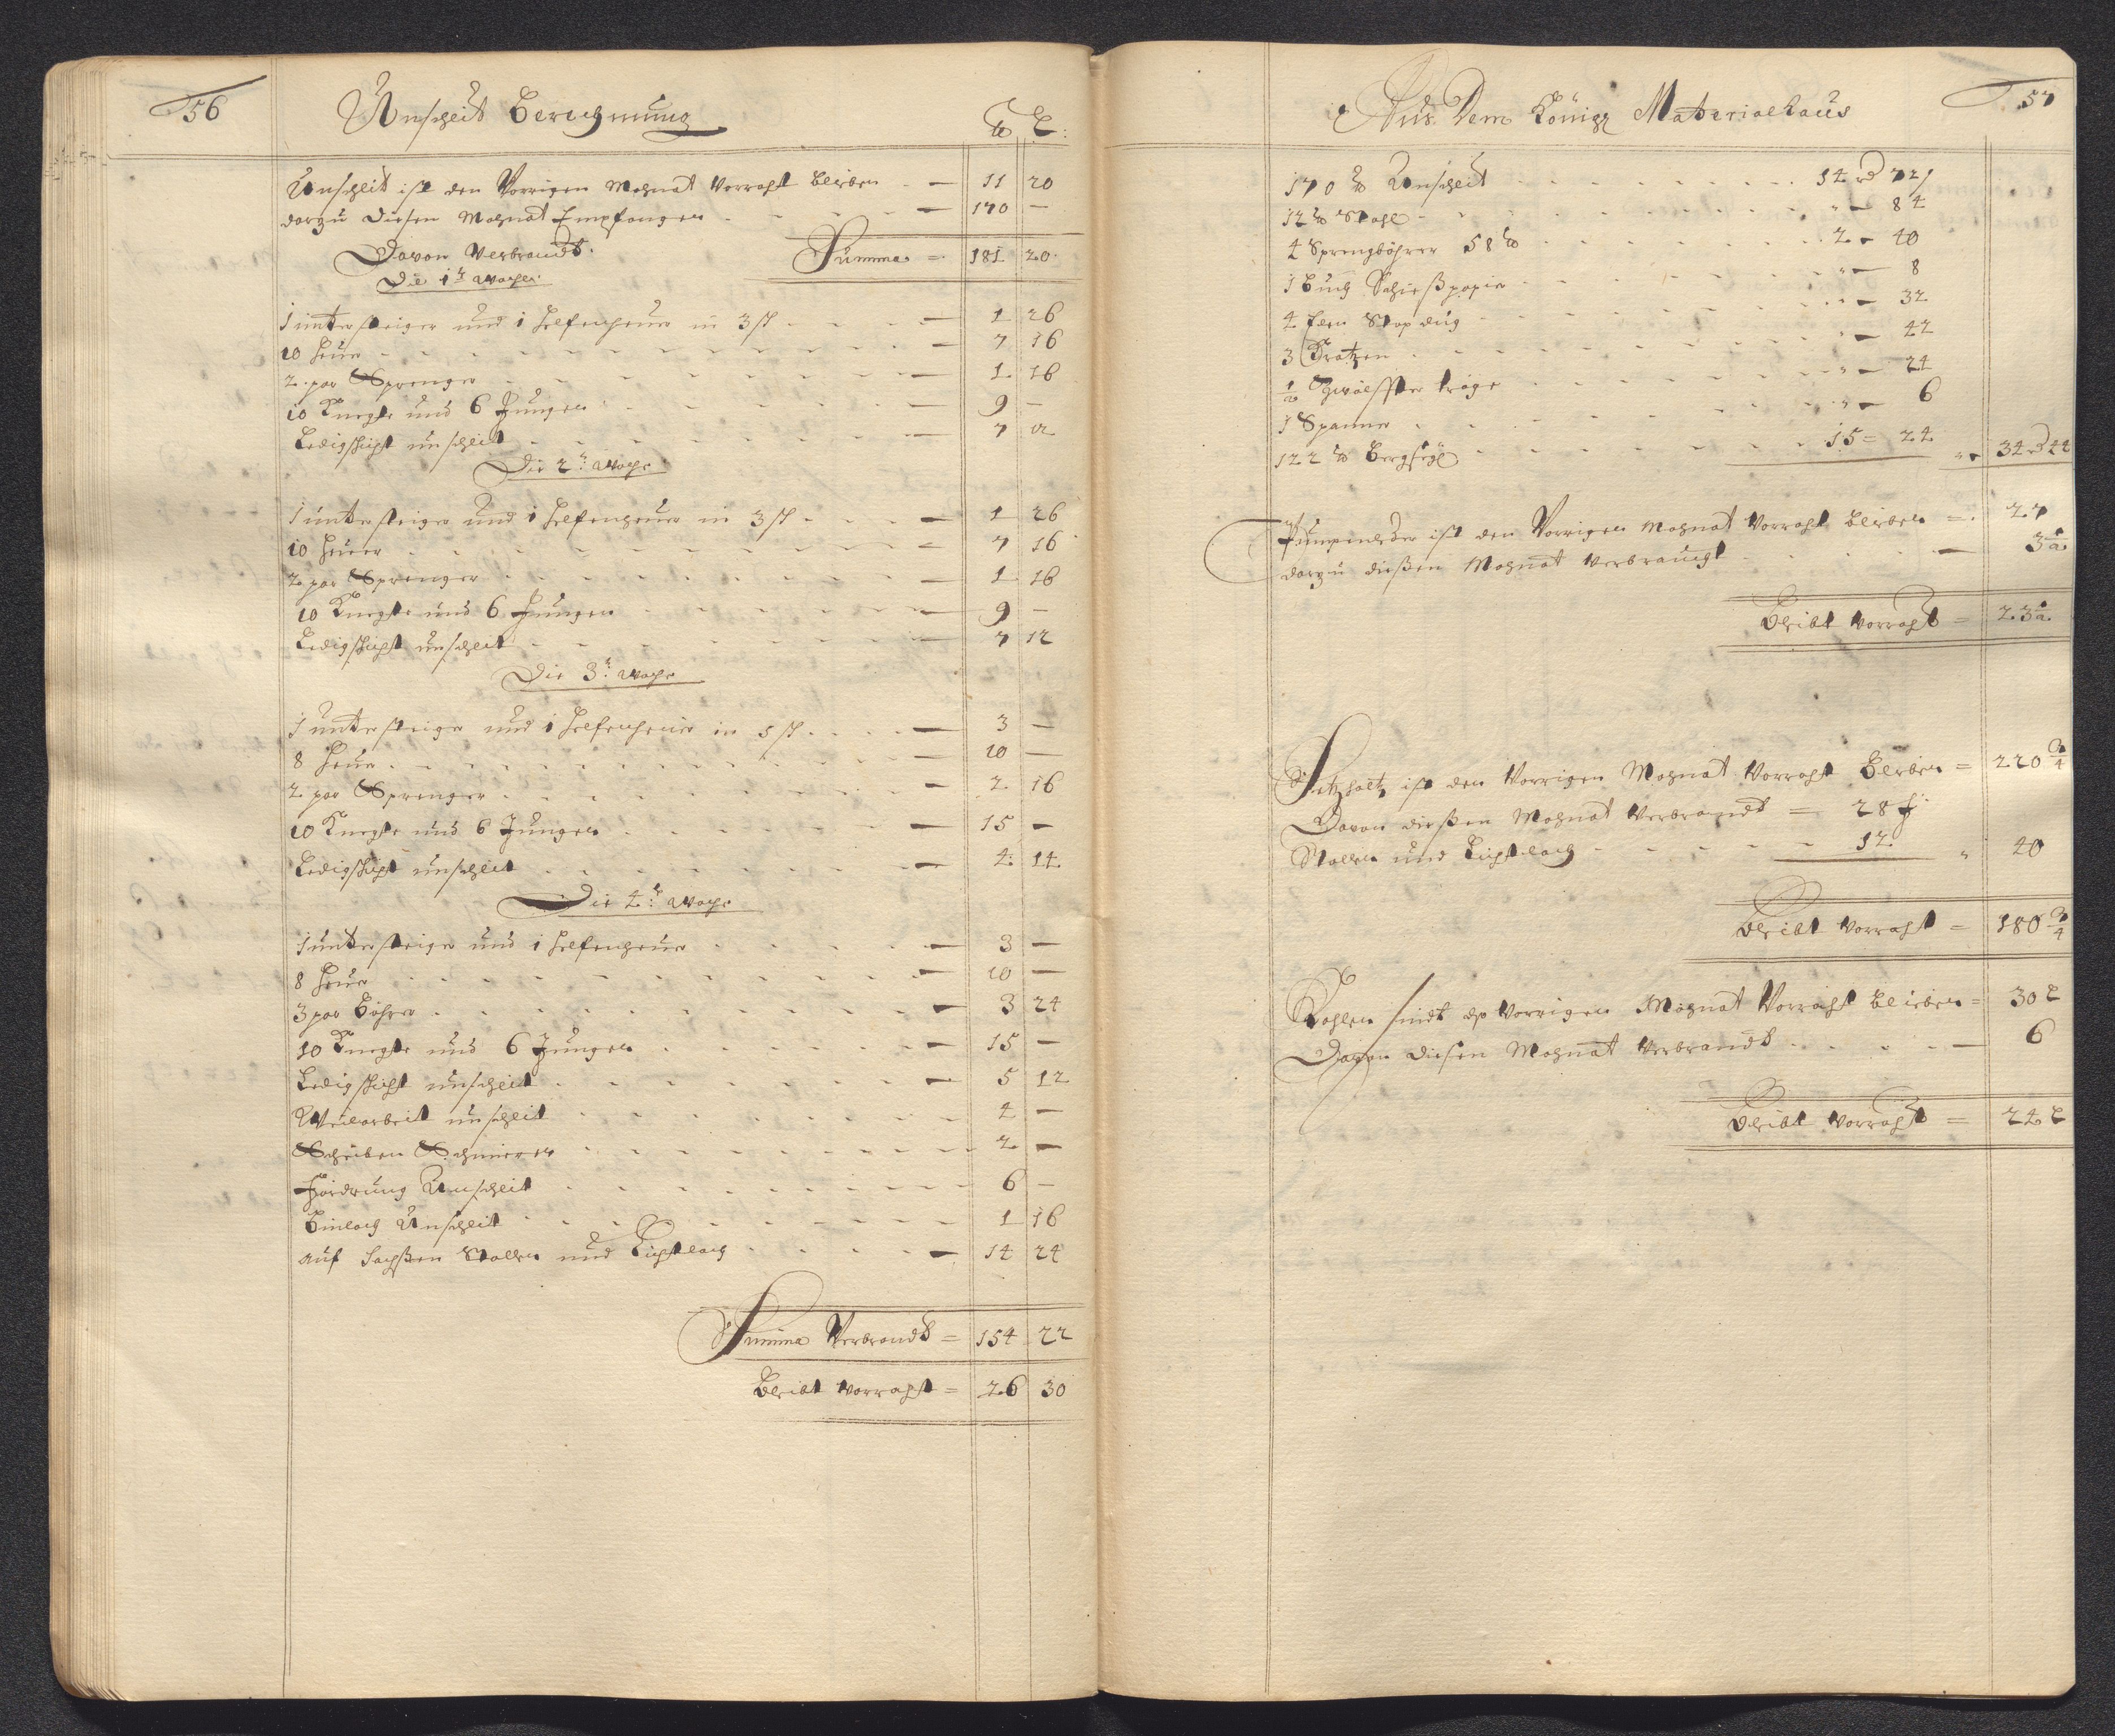 56
Unscheit Berechnung
℔ L:
Unscheit ist den Vorrigen Mohnat Vorraht bleiben – 11 20
darzu diesen Mohnat Empfangen – 170 –
Davon Verbraucht. Summa = 181 20
Die 1te Woche
1 untersteiger und 1 helfenheuer in 3 sh – 1 26
10 heuer – 7 16
2 par Sprenger – 1 16
10 Knegte und 6 Jungen – 9 –
Ledigschicht unscheit – 7 12
Die 2te Woche
1 untersteiger und 1 helfenheuer in 3 sh – 1 26
10 heuer – 7 16
2 par Sprenger – 1 16
10 Knegte und 6 Jungen – 9 –
Ledigschicht unscheit – 7 12
Die 3te Woche
1 untersteiger und 1 helfenheuer in 5 sh – 3 –
8 heuer – 10 –
2 par Sprenger – 2 16
10 Knegte und 6 Jungen – 15 –
Ledigschicht unscheit – 4 14
Die 4te Woche
1 untersteiger und 1 helfenheuer – 3 –
8 heuer – 10 –
3 par Böhrer – 3 24
10 Knegte und 6 Jungen – 15 –
Ledigschicht unscheit – 5 12
Weilarbeit unscheit – 4 –
Scheiben Schmieren – 2 –
Fördrung Unscheit – 6 –
Unscheit – 1 16
auf Sachßen Stollen und Lichtloch – 14 24
Summa Verbrandt = 154 22
Bleibt Vorraht = 26 30
57
Aus Dem Königl Materialhaus
170 ℔ Unscheit 14 rd 72 ß
12 ℔ Stahl " – 84
4 Sprengböhrer 58 ℔ 2 – 40
1 Buch Schießpapir " – 8
4 " – 32
3 Kratzen " – 42
1/2 Zwölffter tröge " – 24
1 Spanner " – 6
122 ℔ 15 = 24 34 rd 44
Pumpenleder ist den Vorrigen Mohnat Vorraht bleiben = 27
darzu dießen Mohnat Verbraucht – 3 1/2
Bleibt Vorraht = 23 1/2
Setzholtz ist den Vorrigen Mohnat Vorraht bleiben = 220 3/4
Davon dießen Mohnat Verbrandt = 28 f
Stollen und Lichtloch – 12 " 40
Bleibt Vorraht = 180 3/4
Kohlen sindt der Vorrigen Mohnat Vorraht bleiben = 30 L
Davon diesen Mohnat Verbrandt – 6
Bleibt Vorraht = 24 L